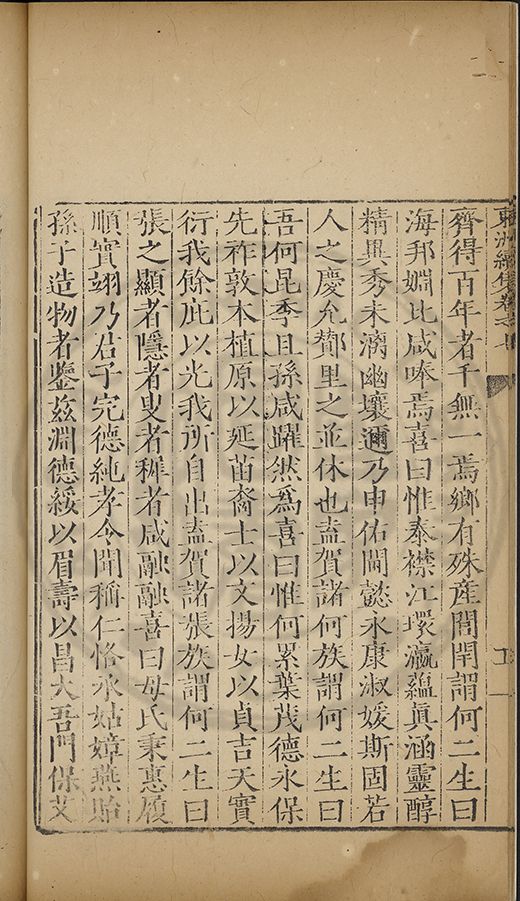 齊得百年者千無一焉鄉有殊産閭閈謂何二生曰
海邦婣比咸唪焉喜曰惟泰襟江環瀛蘊眞涵靈醇
精異秀未漓幽壤邇乃申佑閫懿永康淑媛斯固若
人之慶允鄰里之並休也蓋賀諸何族謂何二生曰
吾何昆季且孫咸躍然爲喜曰惟何累葉茂德永保
先祚敦本植原以延苗裔士以文揚女以貞吉天實
衍我餘庇以光我所自出蓋賀諸張族謂何二生曰
張之顯者隱者叟者穉者咸融融喜曰母氏秉惠履
順實翊乃君子完德純孝令聞稱仁恪承姑嫜燕貽
孫子造物者鑒茲淵德綏以眉壽以昌大吾門保艾